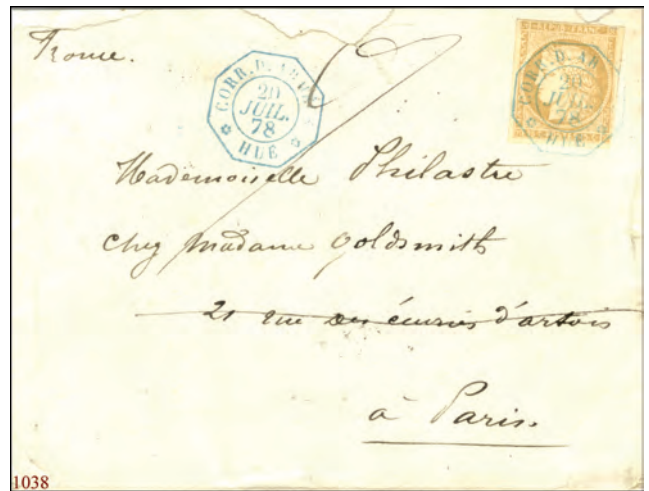 France.
CORR. D. ARMÉES
20
JUIL.
78
HUÉ
REPUB. FRANC.
CORR. D. AR
20
JUIL.
78
HUÉ
Mademoiselle Philastre
chez Madame Goldsmith
21 rue des écuries d'artois
à Paris.
1038